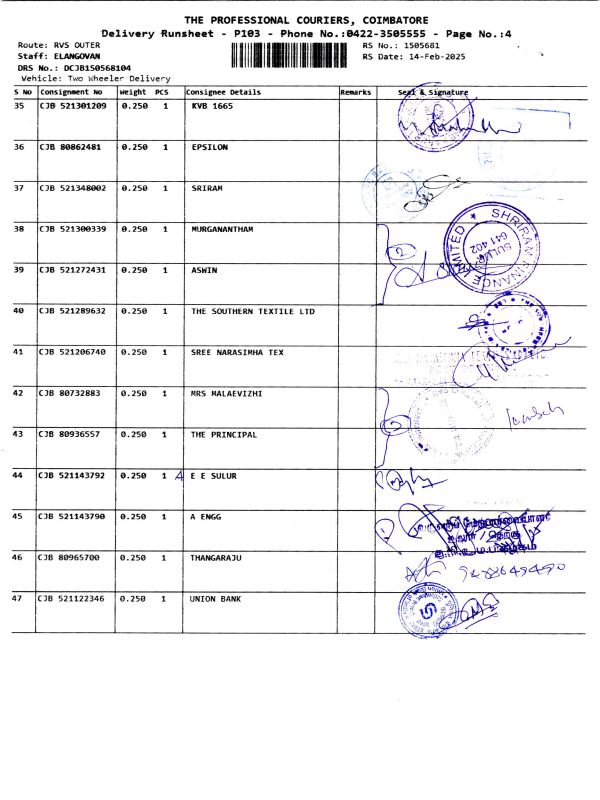 THE PROFESSIONAL COURIERS, COIMBATORE
Delivery Runsheet - P103 - Phone No.:0422-3505555 - Page No.:4
Route: RVS OUTER
RS No.: 1505681
Staff: ELANGOVAN
RS Date: 14-Feb-2025
DRS No.: DCJB150568104
Vehicle: Two Wheeler Delivery
S No Consignment No Weight PCS Consignee Details Remarks Seal & Signature
35 CJB 521301209 0.250 1 KVB 1665
36 CJB 80862481 0.250 1 EPSILON
37 CJB 521348002 0.250 1 SRIRAM
38 CJB 521300339 0.250 1 MURGANANTHAM
SHRIRAM FINANCE LIMITED
SULUR
641 402
2
39 CJB 521272431 0.250 1 ASWIN
40 CJB 521289632 0.250 1 THE SOUTHERN TEXTILE LTD
41 CJB 521206740 0.250 1 SREE NARASIMHA TEX
42 CJB 80732883 0.250 1 MRS MALAEVIZHI
43 CJB 80936557 0.250 1 THE PRINCIPAL
44 CJB 521143792 0.250 1 A E E SULUR
45 CJB 521143790 0.250 1 A ENGG
46 CJB 80965700 0.250 1 THANGARAJU
47 CJB 521122346 0.250 1 UNION BANK